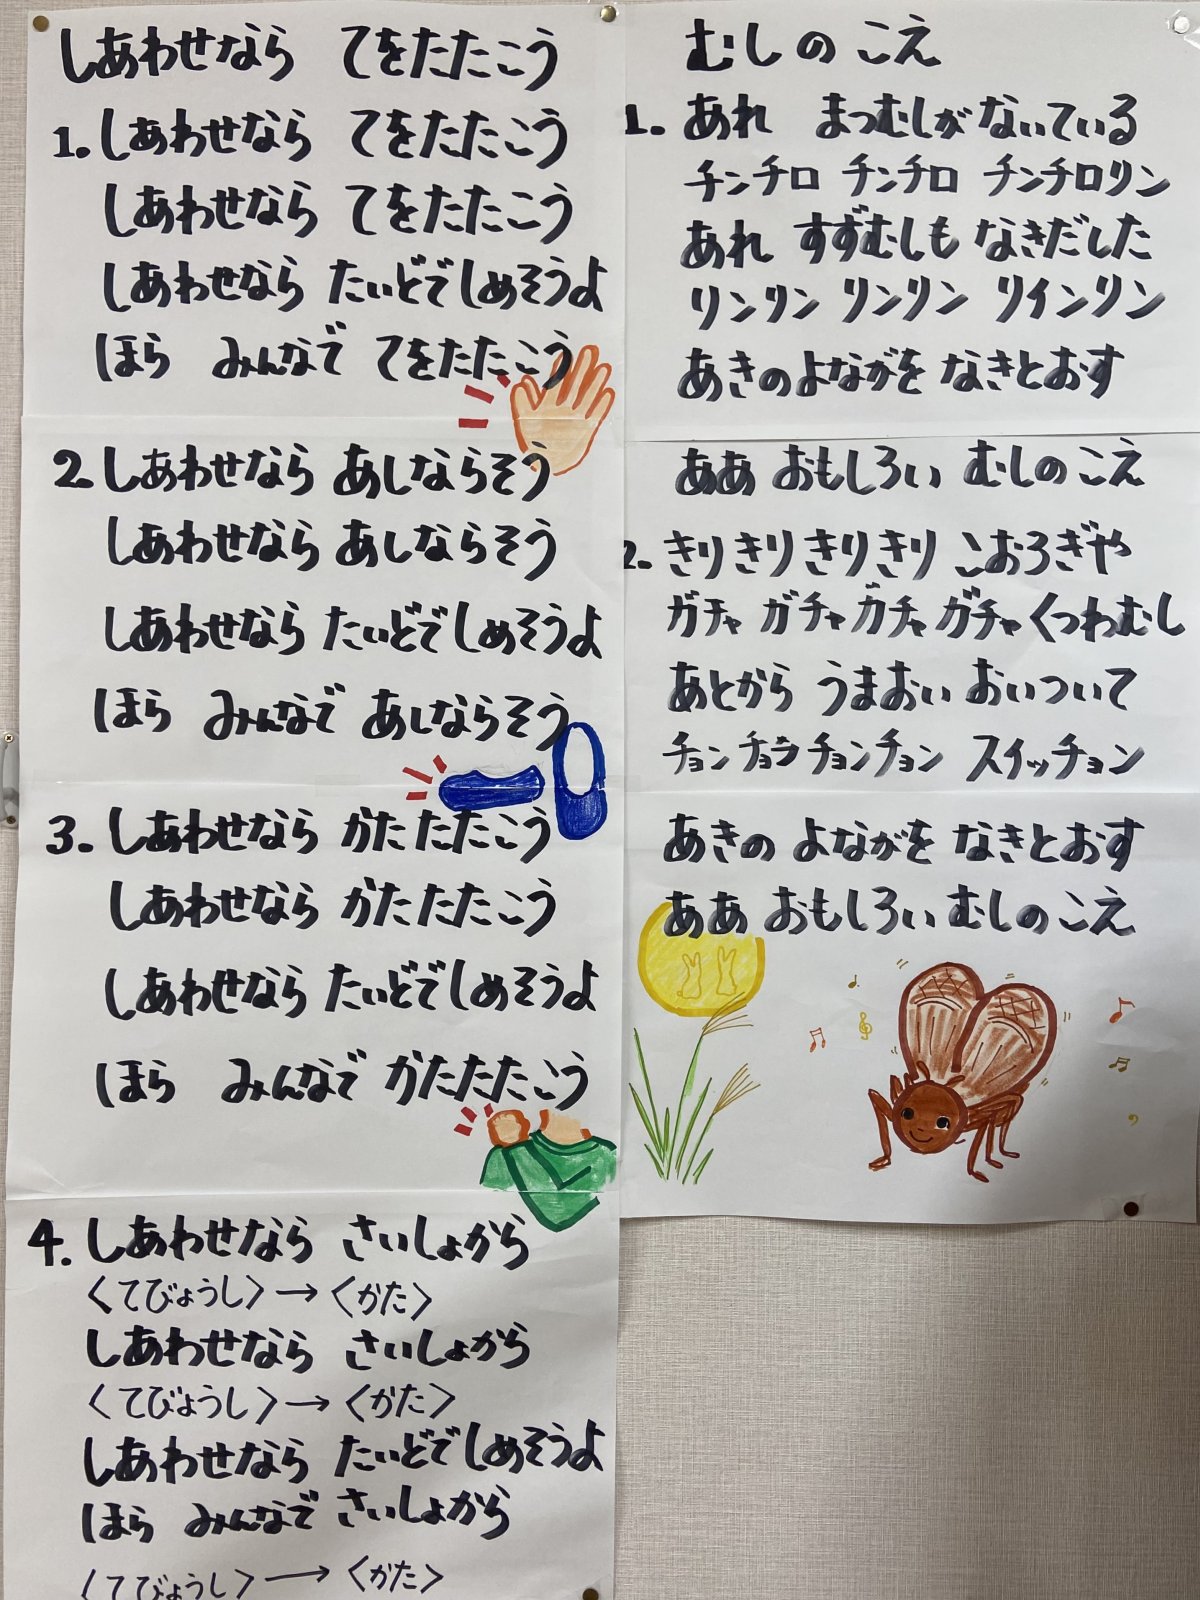 しあわせなら てをたたこう
1. しあわせなら てをたたこう
しあわせなら てをたたこう
しあわせなら たいどでしめそうよ
ほら みんなで てをたたこう
2. しあわせなら あしならそう
しあわせなら あしならそう
しあわせなら たいどでしめそうよ
ほら みんなで あしならそう
3. しあわせなら かた たたこう
しあわせなら かた たたこう
しあわせなら たいどでしめそうよ
ほら みんなで かたたたこう
4. しあわせなら さいしょから
〈てびょうし〉→〈かた〉
しあわせなら さいしょから
〈てびょうし〉→〈かた〉
しあわせなら たいどでしめそうよ
ほら みんなで さいしょから
〈てびょうし〉→〈かた〉
むしの こえ
1. あれ まつむしが ないている
チンチロ チンチロ チンチロリン
あれ すずむしも なきだした
リンリン リンリン リインリン
あきのよながを なきとおす
ああ おもしろい むしの こえ
2. きりきりきりきり こおろぎや
ガチャ ガチャ ガチャ ガチャ くつわむし
あとから うまおい おいついて
チョン チョン チョンチョン スイッチョン
あきの よながを なきとおす
ああ おもしろい むしの こえ